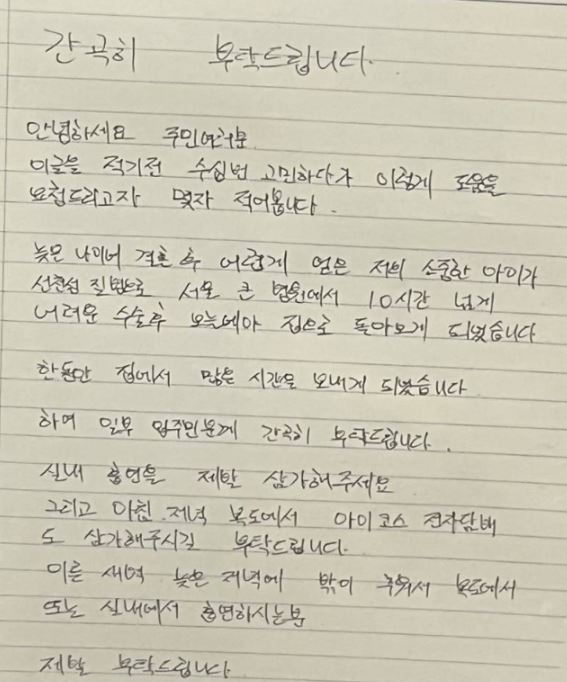 간곡히 부탁드립니다.
안녕하세요 주민여러분
이글을 적기전 수십번 고민하다가 이렇게 도움을
요청드리고자 몇자 적어봅니다.
늦은 나이에 결혼 후 어렵게 얻은 저희 소중한 아이가
선천성 질병으로 서울 큰 병원에서 10시간 넘게
어려운 수술후 오늘에야 집으로 돌아오게 되었습니다
한동안 집에서 많은 시간을 보내게 되었습니다
하여 일부 입주민분께 간곡히 부탁드립니다.
실내 흡연을 제발 삼가해주세요
그리고 아침.저녁 복도에서 아이코스 전자담배
도 삼가해주시길 부탁드립니다.
이른 새벽 늦은 저녁에 밖이 추워서 복도에서
또는 실내에서 흡연하시는분
제발 부탁드립니다